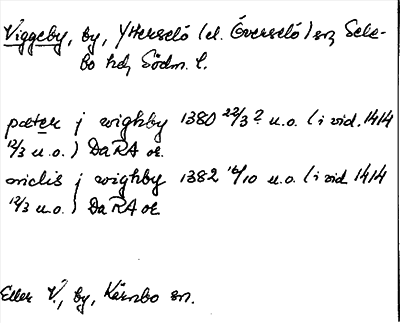 Viggeby, by, Ytterselö (el. Överselö) sn, Sele-
bo hd, Södm. l.
pæter j wighby 1380 22/3? u.o. (i vid. 1414
12/3 u.o.) DaRA or.
niclis j wighby 1382 16/10 u.o. (i vid 1414
12/3 u.o.) DaRA or.
Eller V., by, Kärnbo sn.